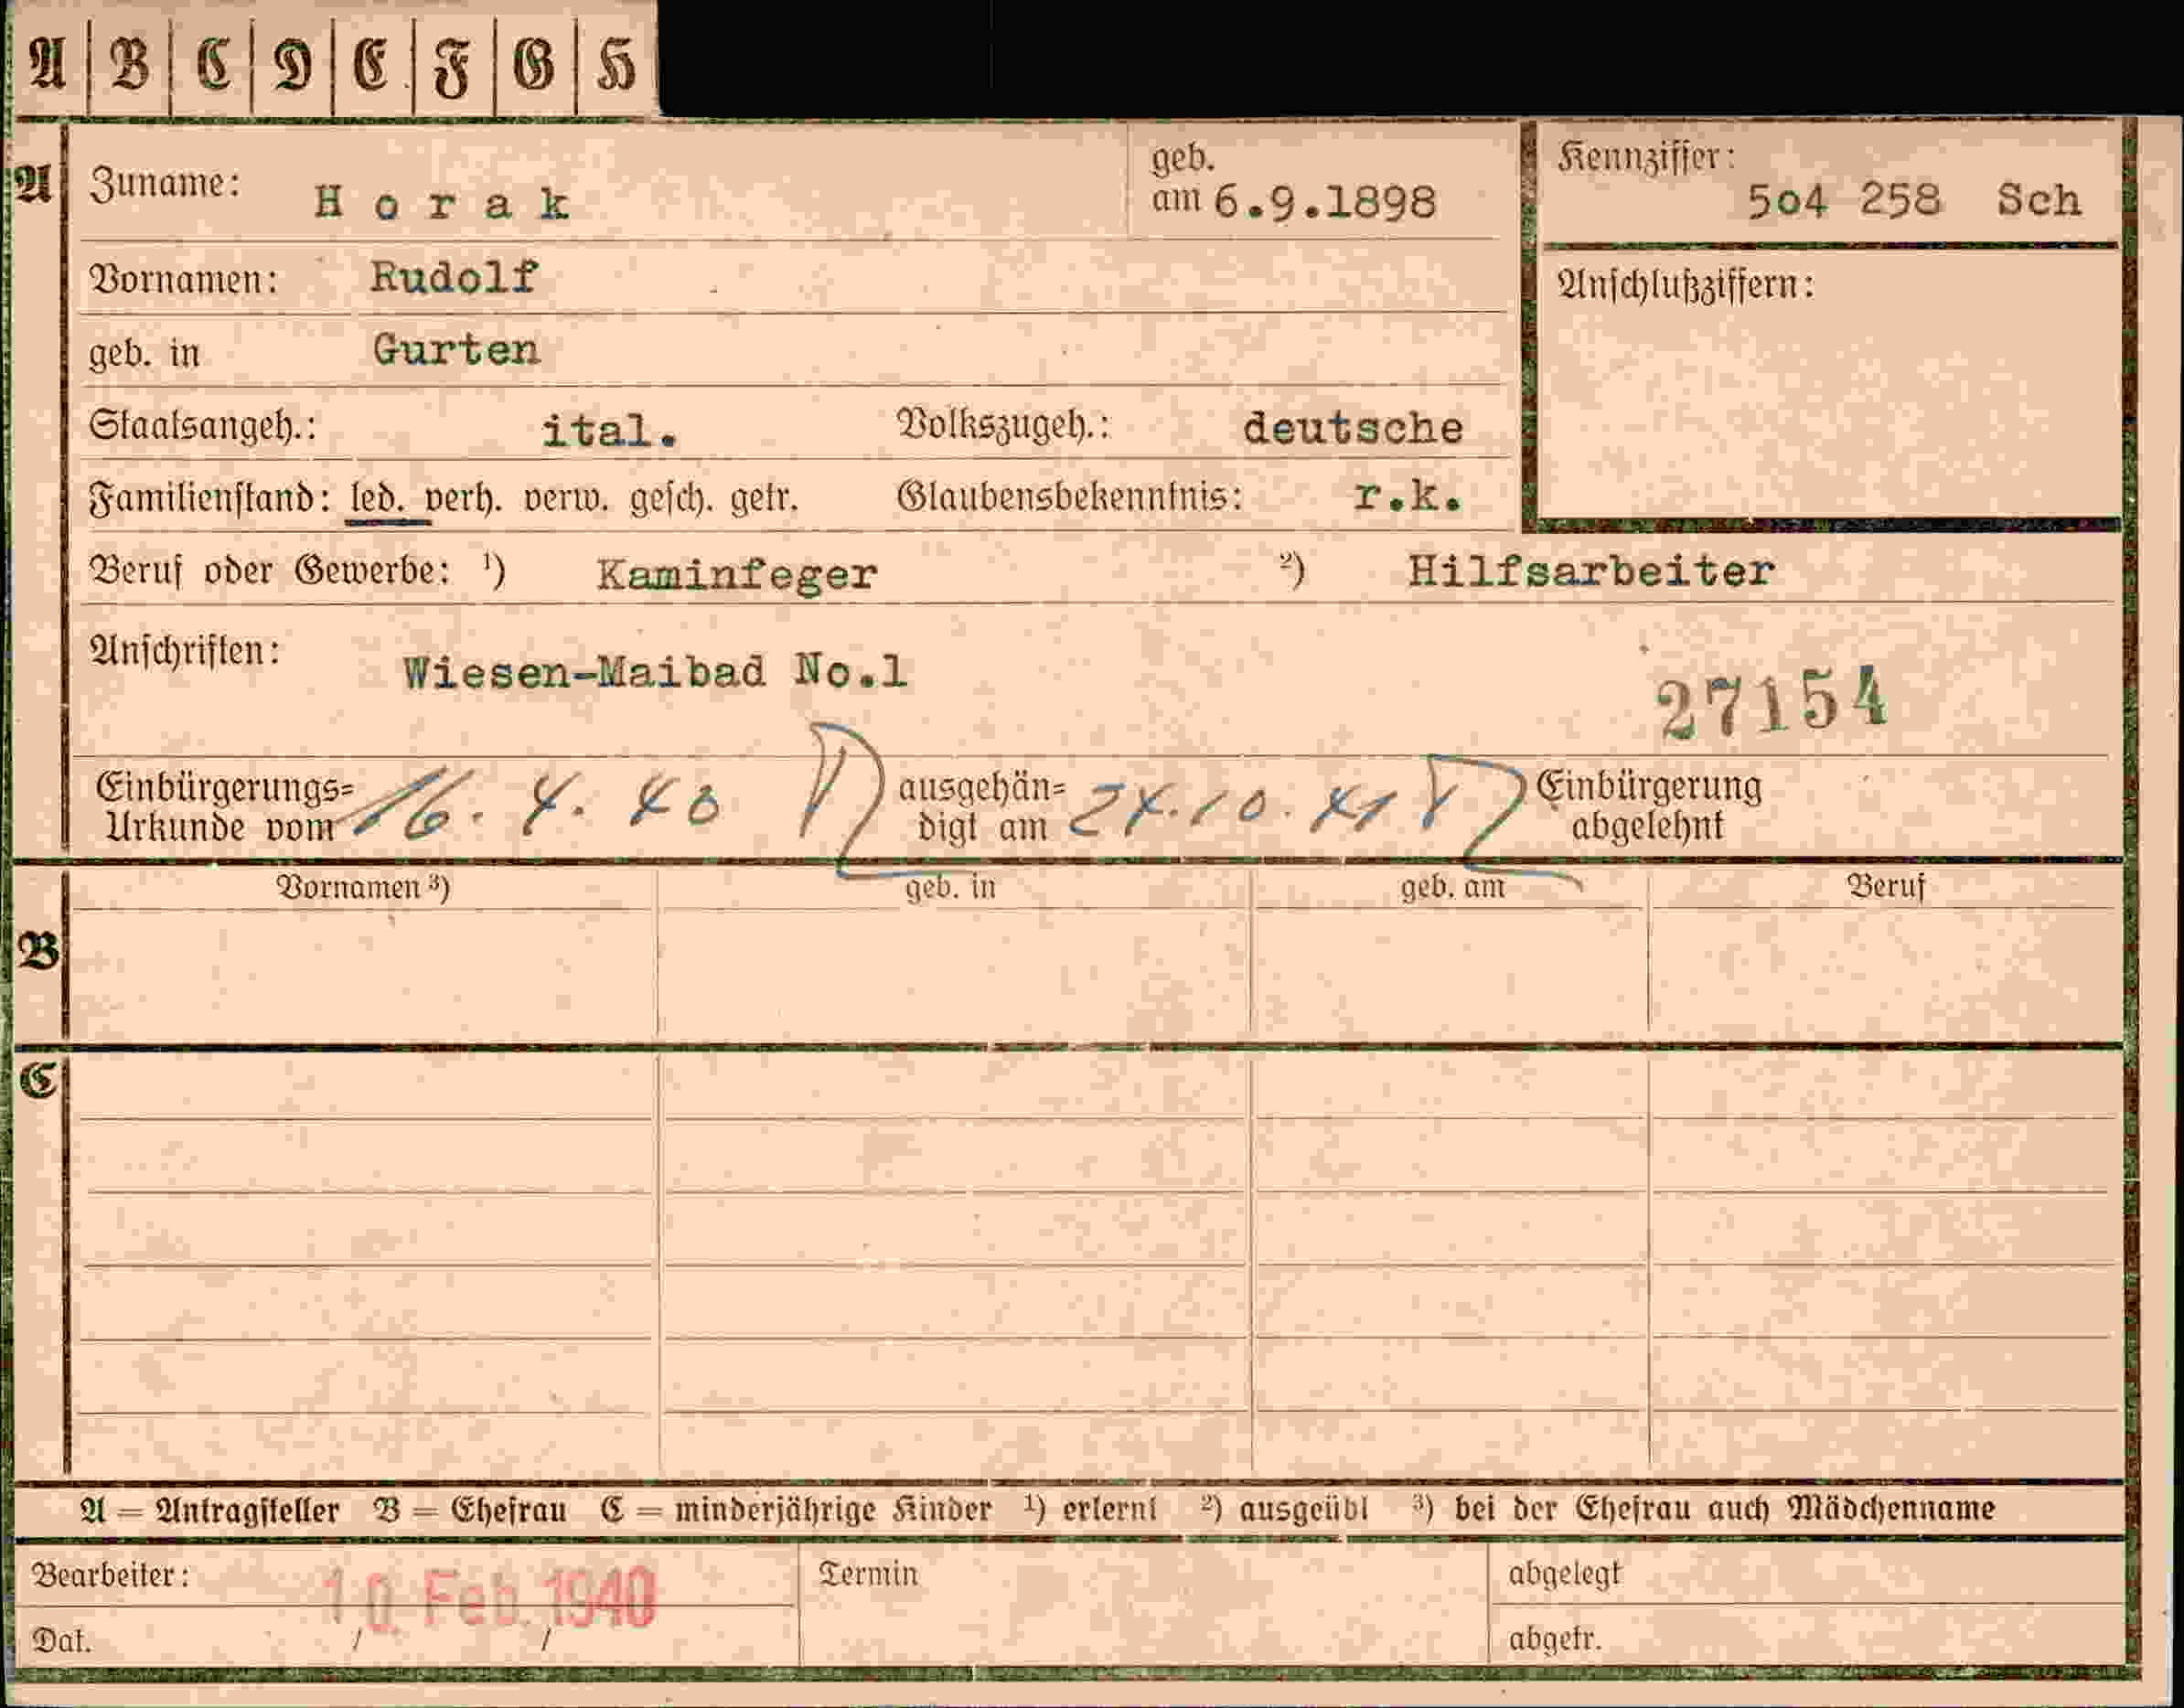 A B C D E F G H
A Zuname: Horak geb. am 6.9.1898 Kennziffer: 504 258 Sch
Vornamen: Rudolf Anschlußziffern:
geb. in Gurten
Staatsangeh.: ital. Volkszugeh.: deutsche
Familienstand: led. verh. verw. gesch. getr. Glaubensbekenntnis: r.k.
Beruf oder Gewerbe: ¹) Kaminfeger ²) Hilfsarbeiter
Anschriften: Wiesen-Maibad No.1
27154
Einbürgerungs= ausgehän= Einbürgerung
Urkunde vom 16. 4. 40 digt am 24.10.41 abgelehnt
Vornamen ³) geb. in geb. am Beruf
B
C
A = Antragsteller B = Ehefrau C = minderjährige Kinder ¹) erlernt ²) ausgeübt ³) bei der Ehefrau auch Mädchenname
Bearbeiter: Termin abgelegt
10. Feb. 1940
Dat. / / abgetr.